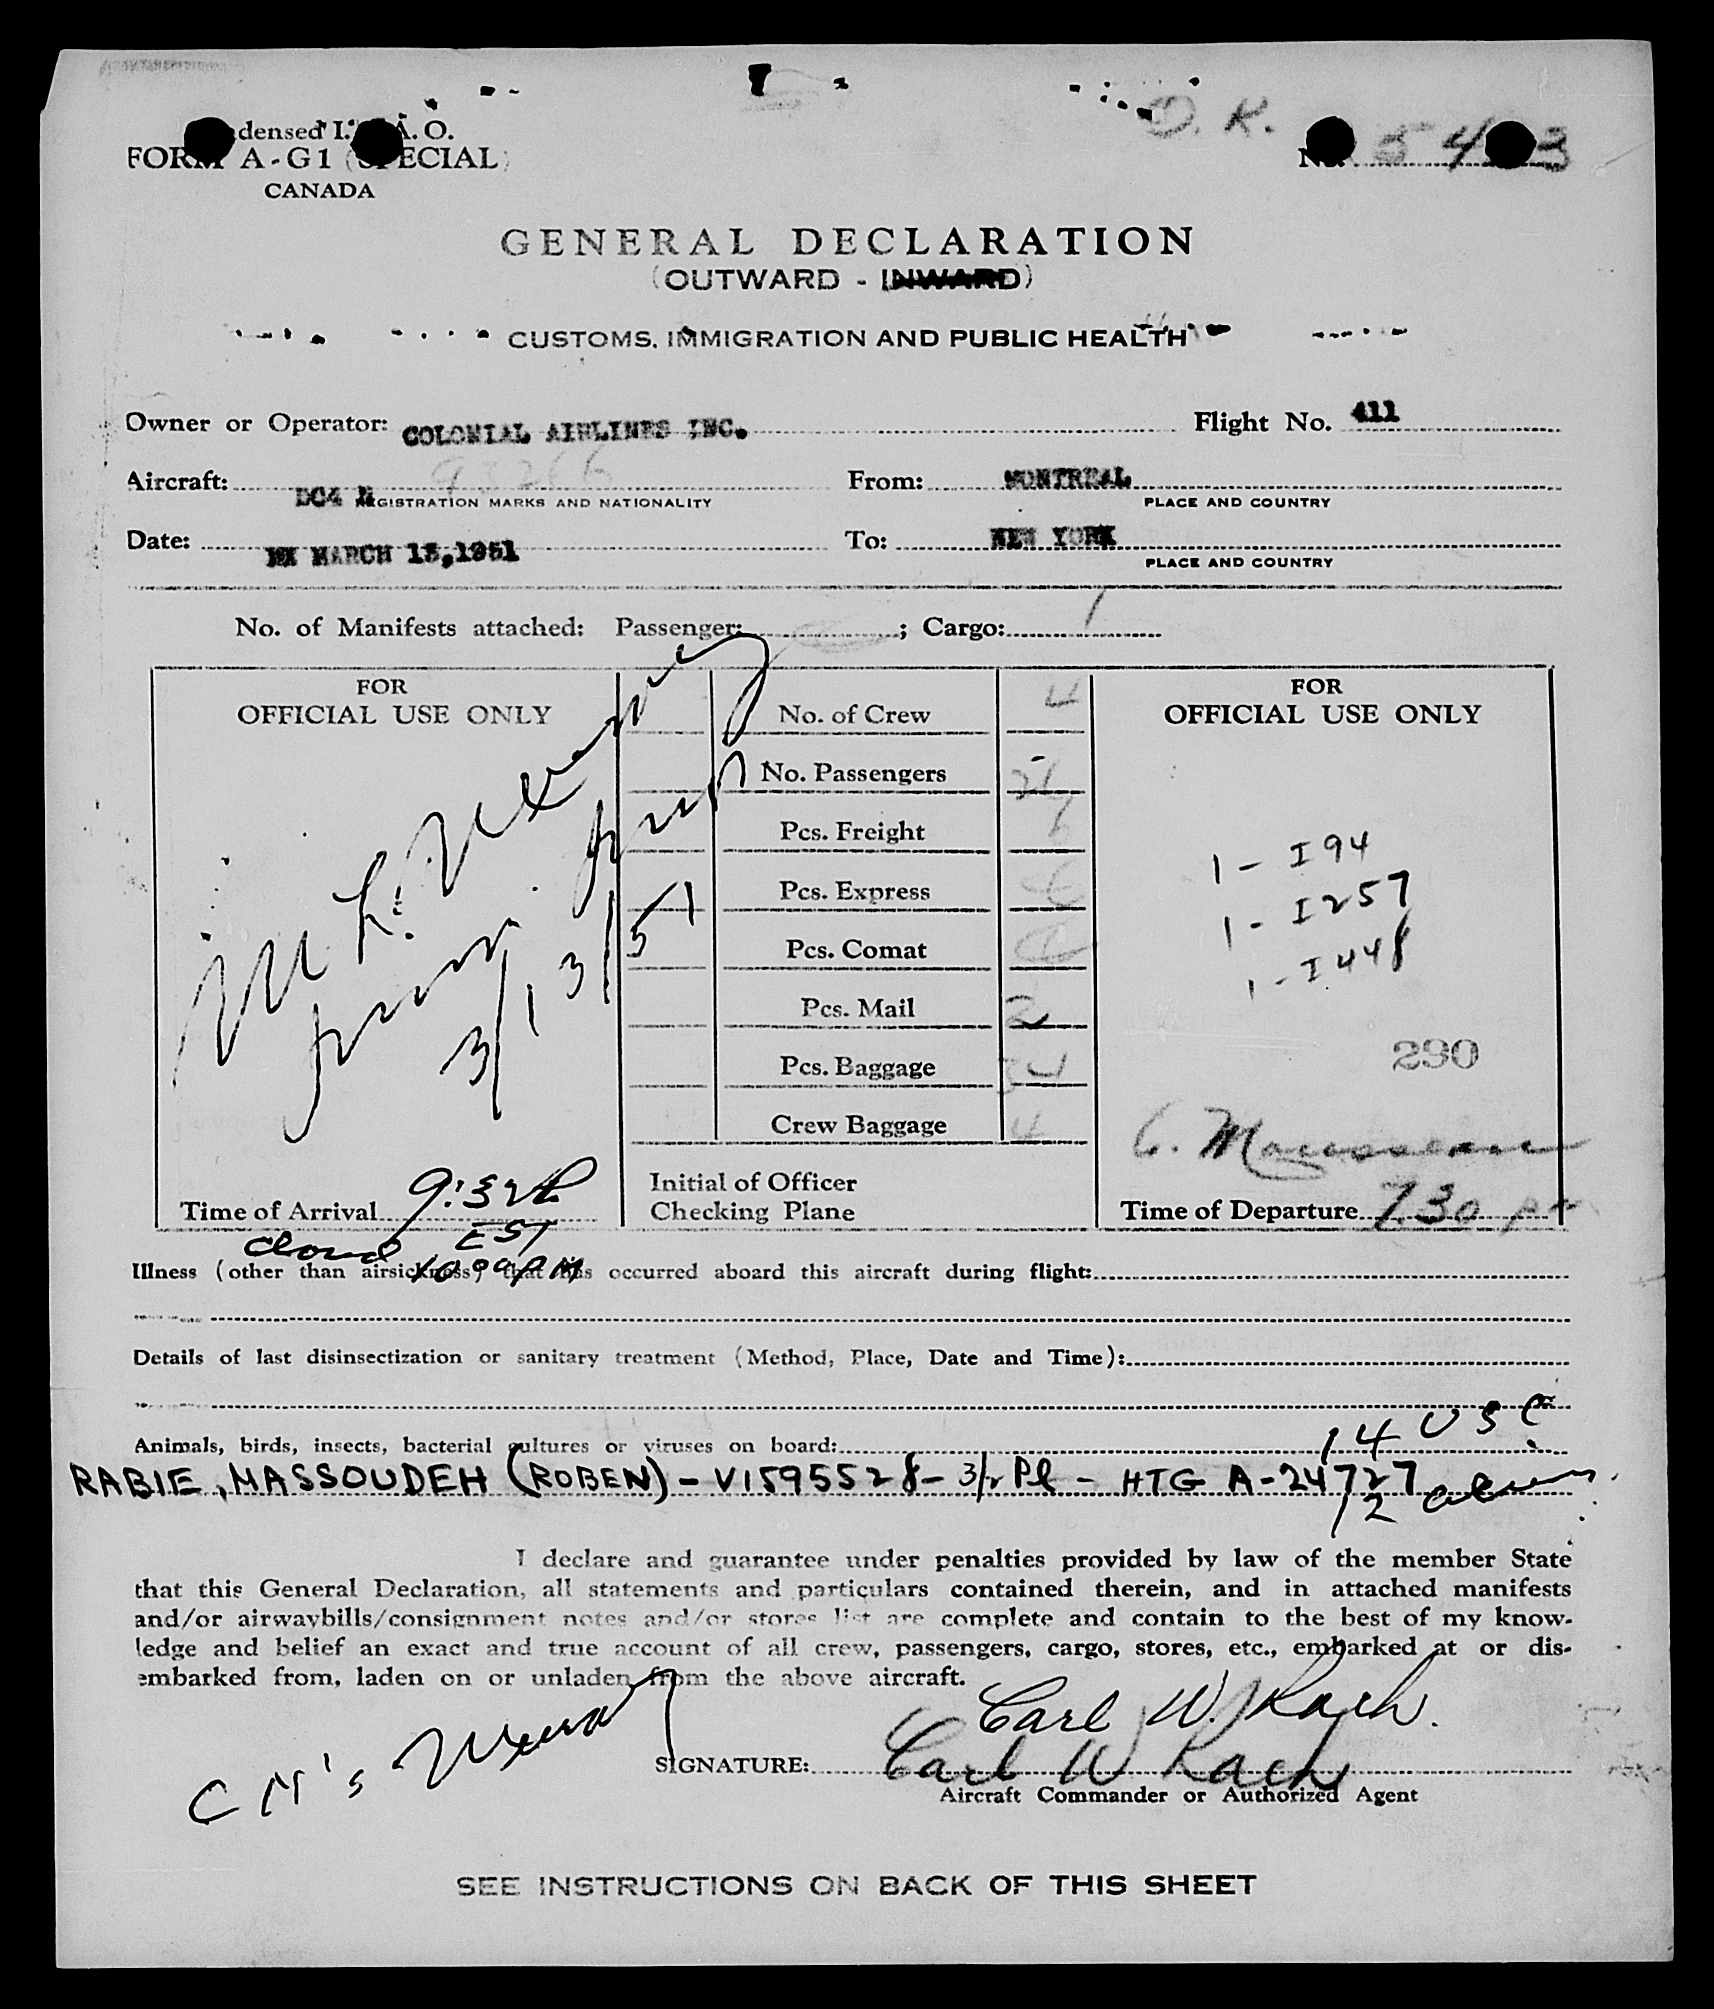 D. K.
FORM A-G1 (SPECIAL)
CANADA
No. 54 3
GENERAL DECLARATION
(OUTWARD - INWARD)
CUSTOMS, IMMIGRATION AND PUBLIC HEALTH
Owner or Operator: COLONIAL AIRLINES INC. Flight No. 411
Aircraft: DC4 N 93266 From: MONTREAL
REGISTRATION MARKS AND NATIONALITY PLACE AND COUNTRY
Date: MARCH 13,1951 To: NEW YORK
PLACE AND COUNTRY
No. of Manifests attached: Passenger: ; Cargo: 1
FOR
OFFICIAL USE ONLY
3/13/51
Time of Arrival 9:32P
EST
No. of Crew 4
No. Passengers 26
Pcs. Freight
Pcs. Express
Pcs. Comat
Pcs. Mail 2
Pcs. Baggage 34
Crew Baggage 4
Initial of Officer
Checking Plane
FOR
OFFICIAL USE ONLY
1 - I 94
1 - I 257
1 - I 448
290
Time of Departure 7.30 pm
Illness (other than airsickness) that has occurred aboard this aircraft during flight:
Details of last disinsectization or sanitary treatment (Method, Place, Date and Time):
14 USC
Animals, birds, insects, bacterial cultures or viruses on board:
RABIE, MASSOUDEH (ROBEN) - V1595528 - 3/2 Pl - HTG A-24727
12 aliens
I declare and guarantee under penalties provided by law of the member State
that this General Declaration, all statements and particulars contained therein, and in attached manifests
and/or airwaybills/consignment notes and/or stores list are complete and contain to the best of my know-
ledge and belief an exact and true account of all crew, passengers, cargo, stores, etc., embarked at or dis-
embarked from, laden on or unladen from the above aircraft.
Carl W. Rach.
SIGNATURE: Carl W Rach
Aircraft Commander or Authorized Agent
SEE INSTRUCTIONS ON BACK OF THIS SHEET